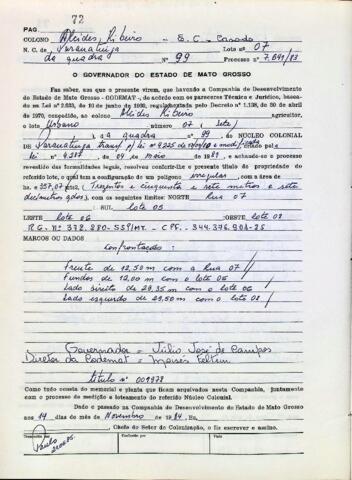 72
PAG.
COLONO Alcides Ribeiro - S.C - Casado
N. C. de Paranatinga Lote nº 07
da quadra Nº 99 Processo nº 7.641/83
O GOVERNADOR DO ESTADO DE MATO GROSSO
Faz saber, aos que o presente virem, que havendo a Companhia de Desenvolvimento
do Estado de Mato Grosso - CODEMAT - de acôrdo com os pareceres Técnico e Jurídico, basea-
do na Lei nº 2.633, de 10 de junho de 1966, regulamentada pelo Decreto nº 1.138, de 30 de abril
de 1970, concedido, ao colono Alcides Ribeiro agricultor,
o lote Urbano número 07 (sete)
da quadra nº 99 do NÚCLEO COLONIAL
de Paranatinga criado pela
lei nº 4.287, de 04 de Maio de 1981, e achando-se o processo
revestido das formalidades legais, resolveu conferir-lhe o presente título de propriedade do
referido lote, o qual tem a configuração de um polígono irregular, com a área de
has. 357,07 mts2, (Trezentos e cinquenta e sete metros e sete
decimetros qdos), com os seguintes limites: NORTE Rua 07
SUL lote 05
LESTE lote 06 OESTE lote 08
R.G. Nº 372.280-SSP/MT. - CPF. 344.376.901-25
MARCOS OU DADOS
Confrontações:
Frente de 12,50 m com a Rua 07
Fundos de 12,00 m com o lote 05
Lado direito de 29,35 m com o lote 06
Lado esquerdo de 29,50 m com o lote 08
Governador = Júlio José de Campos
Diretor da Codemat = Moisés Feltrin
título nº 001978
Como tudo consta do memorial e planta que ficam arquivados nesta Companhia, juntamente
com o processo de medição e loteamento do referido Núcleo Colonial.
Dado e passado na Companhia de Desenvolvimento do Estado de Mato Grosso
aos 14 dias do mês de Novembro de 1984. Eu,
Chefe do Setor de Colonização, o fiz escrever e assino.
Transcrito por Conferido por Visto
Paulo